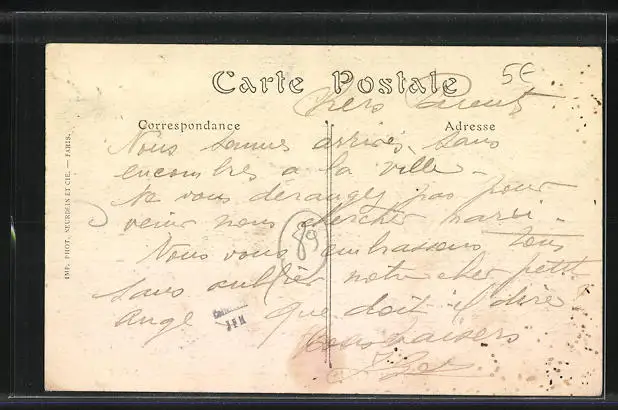 Carte Postale
5€
Chers parents
Correspondance
Adresse
Nous sommes arrivés sans
encombres a la ville -
Ne vous dérangez pas pour
venir nous chercher mardi -
Nous vous embrassons tous
sans oublier notre cher petit
ange que doit il dire
baisers
89
IMP. PHOT. NEURDEIN ET CIE. — PARIS.